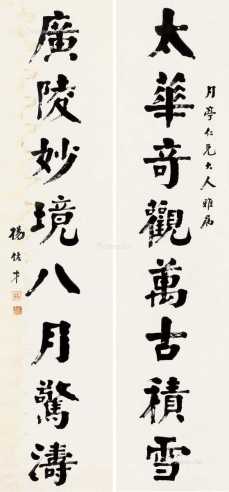 月亭仁兄大人雅屬
太華奇觀萬古積雪
廣陵妙境八月驚濤
楊佑才